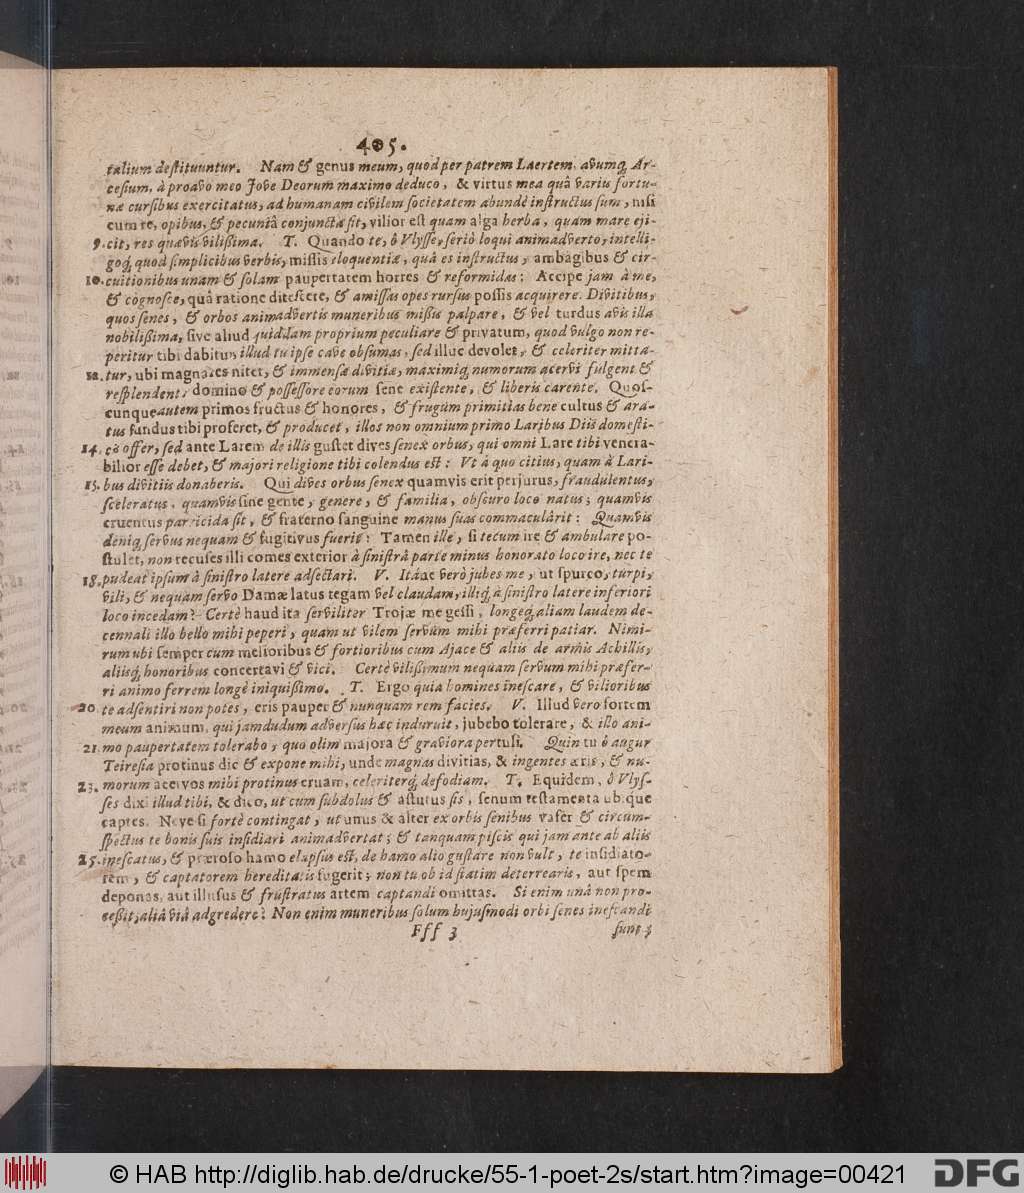 405.
talium destituuntur. Nam & genus meum, quod per patrem Laertem, avumq́; Ar-
cesium, à proavo meo Jove Deorum maximo deduco, & virtus mea quâ varius fortu-
næ cursibus exercitatus, ad humanam civilem societatem abundè instructus sum, nisi
cum re, opibus, & pecuniâ conjuncta sit, vilior est quam alga herba, quam mare eji-
9. cit, res quævis vilißima. T. Quando te, ô Ulysse, seriò loqui animadverto, intelli-
goq́; quod simplicibus verbis, missis eloquentiæ, quâ es instructus, ambagibus & cir-
10. cuitionibus unam & solam paupertatem horres & reformidas: Accipe jam à me,
& cognosce, quâ ratione ditescere, & amissas opes rursus possis acquirere. Divitibus,
quos senes, & orbos animadvertis muneribus mißis palpare, & vel turdus avis illa
nobilißima, sive aliud quiddam proprium peculiare & privatum, quod vulgo non re-
peritur tibi dabitur, illud tu ipse cave obsumas, sed illuc devolet, & celeriter mitta-
12. tur, ubi magna res nitet, & immensæ divitiæ, maximiq́; numorum acervi fulgent &
resplendent, domino & possessore eorum sene existente, & liberis carente. Quos-
cunque autem primos fructus & honores, & frugum primitias bene cultus & ara-
tus fundus tibi proferet, & producet, illos non omnium primo Laribus Diis domesti-
14. cis offer, sed ante Larem de illis gustet dives senex orbus, qui omni Lare tibi venera-
bilior esse debet, & majori religione tibi colendus est: Ut à quo citius, quam à Lari-
15. bus divitiis donaberis. Qui dives orbus senex quamvis erit perjurus, fraudulentus,
sceleratus, quamvis sine gente, genere, & familia, obscuro loco natus; quamvis
cruentus parricida sit, & fraterno sanguine manus suas commacularit: Quamvis
deniq́; servus nequam & fugitivus fuerit: Tamen ille, si tecum ire & ambulare po-
stulet, non recuses illi comes exterior à sinistrâ parte minus honorato loco ire, nec te
18. pudeat ipsum à sinistro latere adsectari. V. Itáne verò jubes me, ut spurco, turpi,
vili, & nequam servo Damæ latus tegam vel claudam, illiq́; à sinistro latere inferiori
loco incedam? Certè haud ita serviliter Trojæ me gessi, longeq́; aliam laudem de-
cennali illo bello mihi peperi, quam ut vilem servum mihi præferri patiar. Nimi-
rum ubi semper cum melioribus & fortioribus cum Ajace & aliis de armis Achillis,
aliisq́; honoribus concertavi & vici. Certè vilißimum nequam servum mihi præfer-
ri animo ferrem longè iniquißimo. T. Ergo quia homines inescare, & vilioribus
20. te adsentiri non potes, eris pauper & nunquam rem facies. V. Illud vero fortem
meum animum, qui jamdudum adversus hæc induruit, jubebo tolerare, & illo ani-
21. mo paupertatem tolerabo, quo olim majora & graviora pertuli. Quin tu ô augur
Teiresia protinus dic & expone mihi, unde magnas divitias, & ingentes æris, & nu-
23. morum acervos mihi protinus eruam, celeriterq́; defodiam. T. Equidem, ô Ulys-
ses dixi illud tibi, & dico, ut cum subdolus & astutus sis, senum testamenta ubique
captes. Neve si fortè contingat, ut unus & alter ex orbis senibus vafer & circum-
spectus te bonis suis insidiari animadvertat; & tanquam piscis qui jam ante ab aliis
25. inescatus, & præroso hamo elapsus est, de hamo alio gustare non vult, te insidiato-
rem, & captatorem hereditatis fugerit; non tu ob id statim deterrearis, aut spem
deponas, aut illusus & frustratus artem captandi omittas. Si enim unâ non pro-
ceßit, aliâ viâ adgredere? Non enim muneribus solum hujusmodi orbi senes inescandi
Fff 3 sunt;
© HAB http://diglib.hab.de/drucke/55-1-poet-2s/start.htm?image=00421
DFG